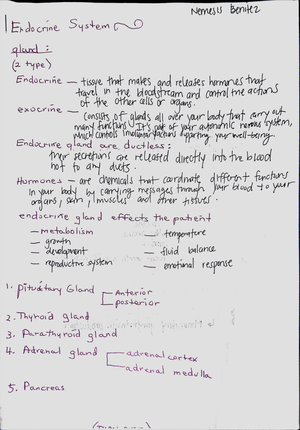 Nemesis Benitez
Endocrine System
gland :
(2 type)
Endocrine — tissue that makes and releases hormones that
travel in the bloodstream and control the actions
of the other cells or organs.
exocrine — consists of glands all over your body that carry out
many functions. It's part of your autonomic nervous system,
which controls involuntary functions supporting your well-being.
Endocrine gland are ductless:
their secretions are released directly into the blood
not to any ducts.
Hormones — are chemicals that coordinate different functions
in your body by carrying messages through your blood to your
organs, skin, muscles and other tissues.
endocrine gland effects the patient
— metabolism — temperature
— growth
— development — fluid balance
— reproductive system — emotional response
1. pituitary Gland — Anterior
posterior
2. Thyroid gland
3. Parathyroid gland
4. Adrenal gland — adrenal cortex
adrenal medulla
5. Pancreas